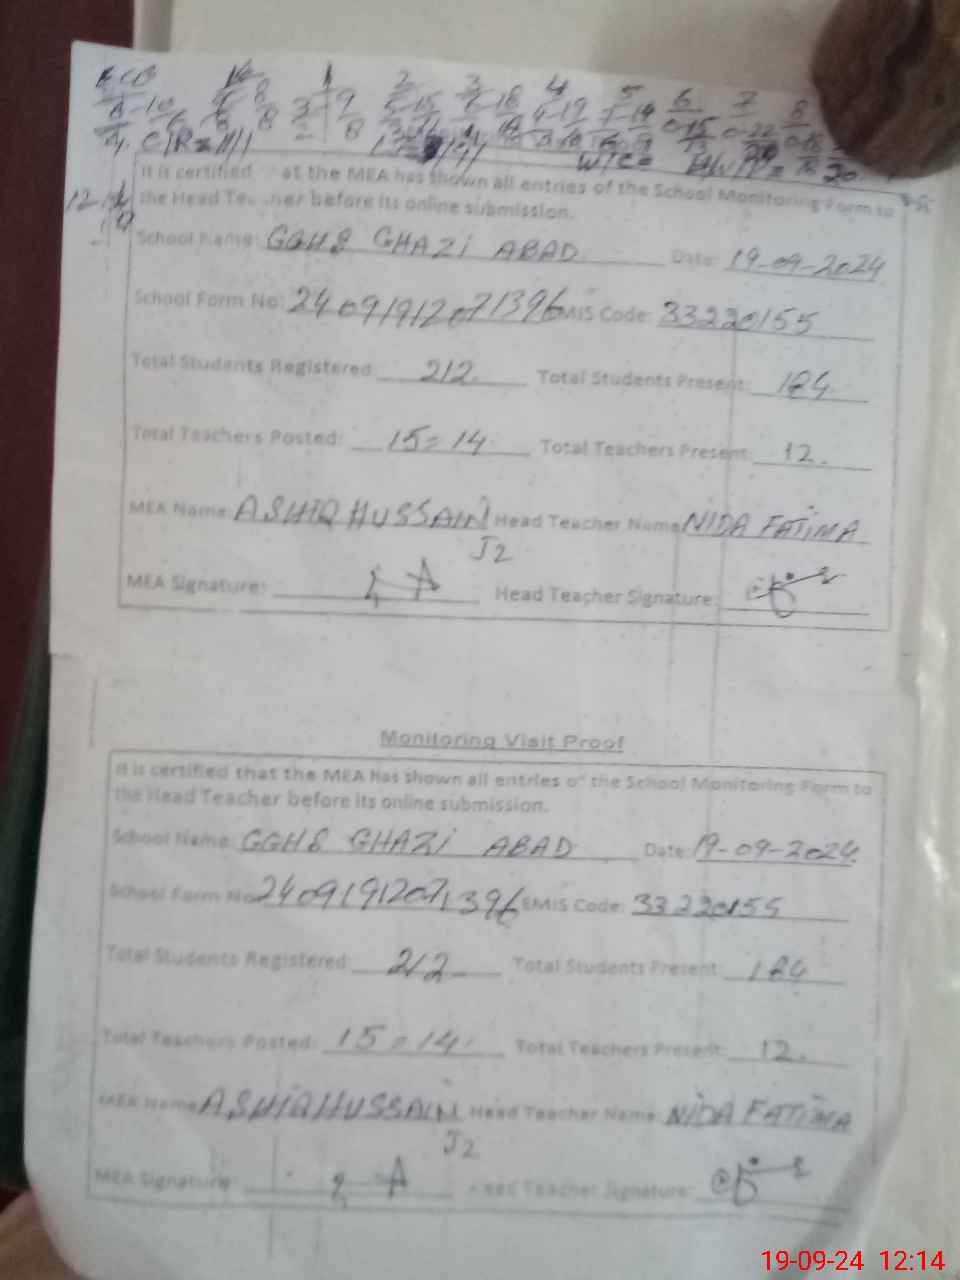 It is certified at the MEA has shown all entries of the School Monitoring Form to
the Head before its online submission.
School Name: GGHS GHAZI ABAD Date: 19-09-2024
School Form No: 24091912071396 EMIS Code: 33220155
Total Students Registered 212 Total Students Present: 184
Total Teachers Posted: 15=14 Total Teachers Present: 12.
MEA Name: ASHIQ HUSSAIN Head Teacher Name NIDA FATIMA
J2
MEA Signature: Head Teacher Signature:
Monitoring Visit Proof
It is certified that the MEA has shown all entries of the School Monitoring Form to
the Head Teacher before its online submission.
School Name: GGHS GHAZI ABAD Date: 19-09-2024
School Form No 24091912071396 EMIS Code: 33220155
Total Students Registered 212 Total Students Present: 184
Total Teachers Posted: 15=14 Total Teachers Present: 12.
MEA Name ASHIQ HUSSAIN Head Teacher Name: NIDA FATIMA
J2
MEA Signature Teacher Signature:
19-09-24 12:14